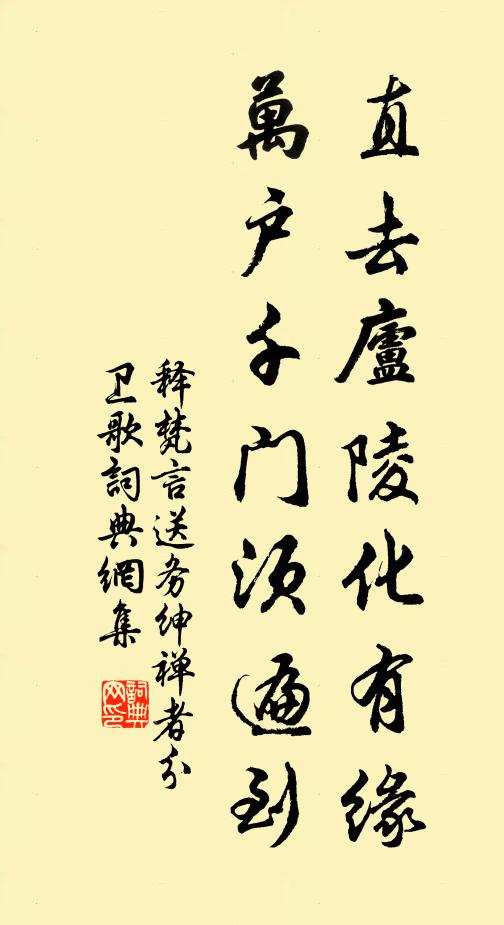 直去廬陵化有緣
萬户千門須遍到
释梵言送务绅禅者分
卫歌詞典網集
詞典网印